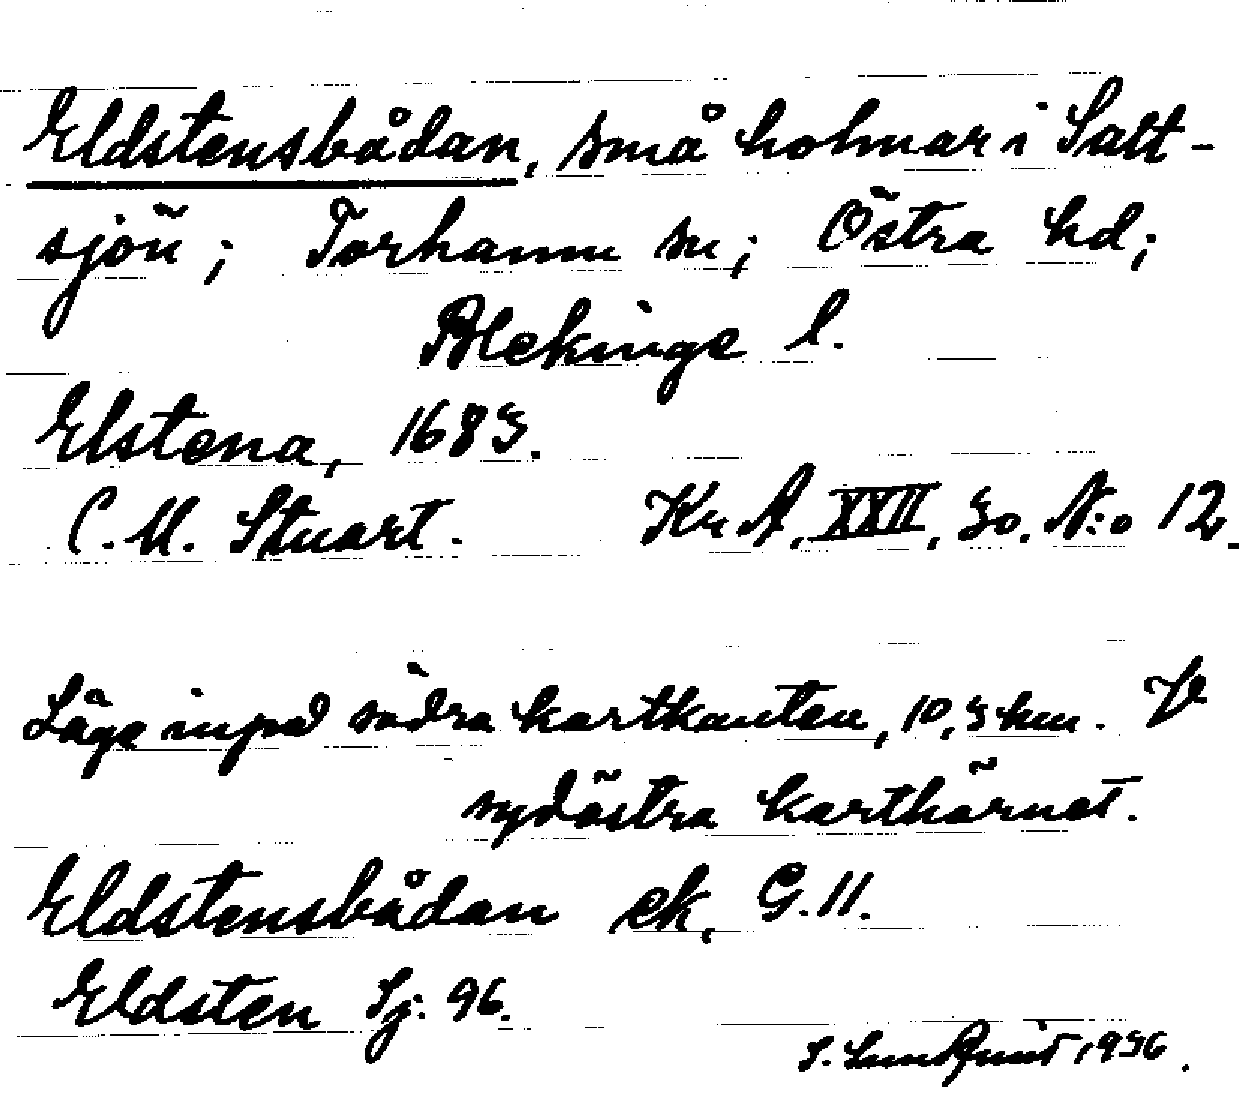 Eldstensbådan, små holmar i Salt-
sjön; Torhamn sn; Östra hd;
Blekinge l.
Elstena, 1683.
C. M. Stuart. Kr A, XXII, 30. N:o 12.
Läge inpå södra kartkanten, 10,3 km. V
sydöstra karthörnet.
Eldstensbådan ek, G. 11.
Eldsten Sj. 96.
S. Lundquist 1936.